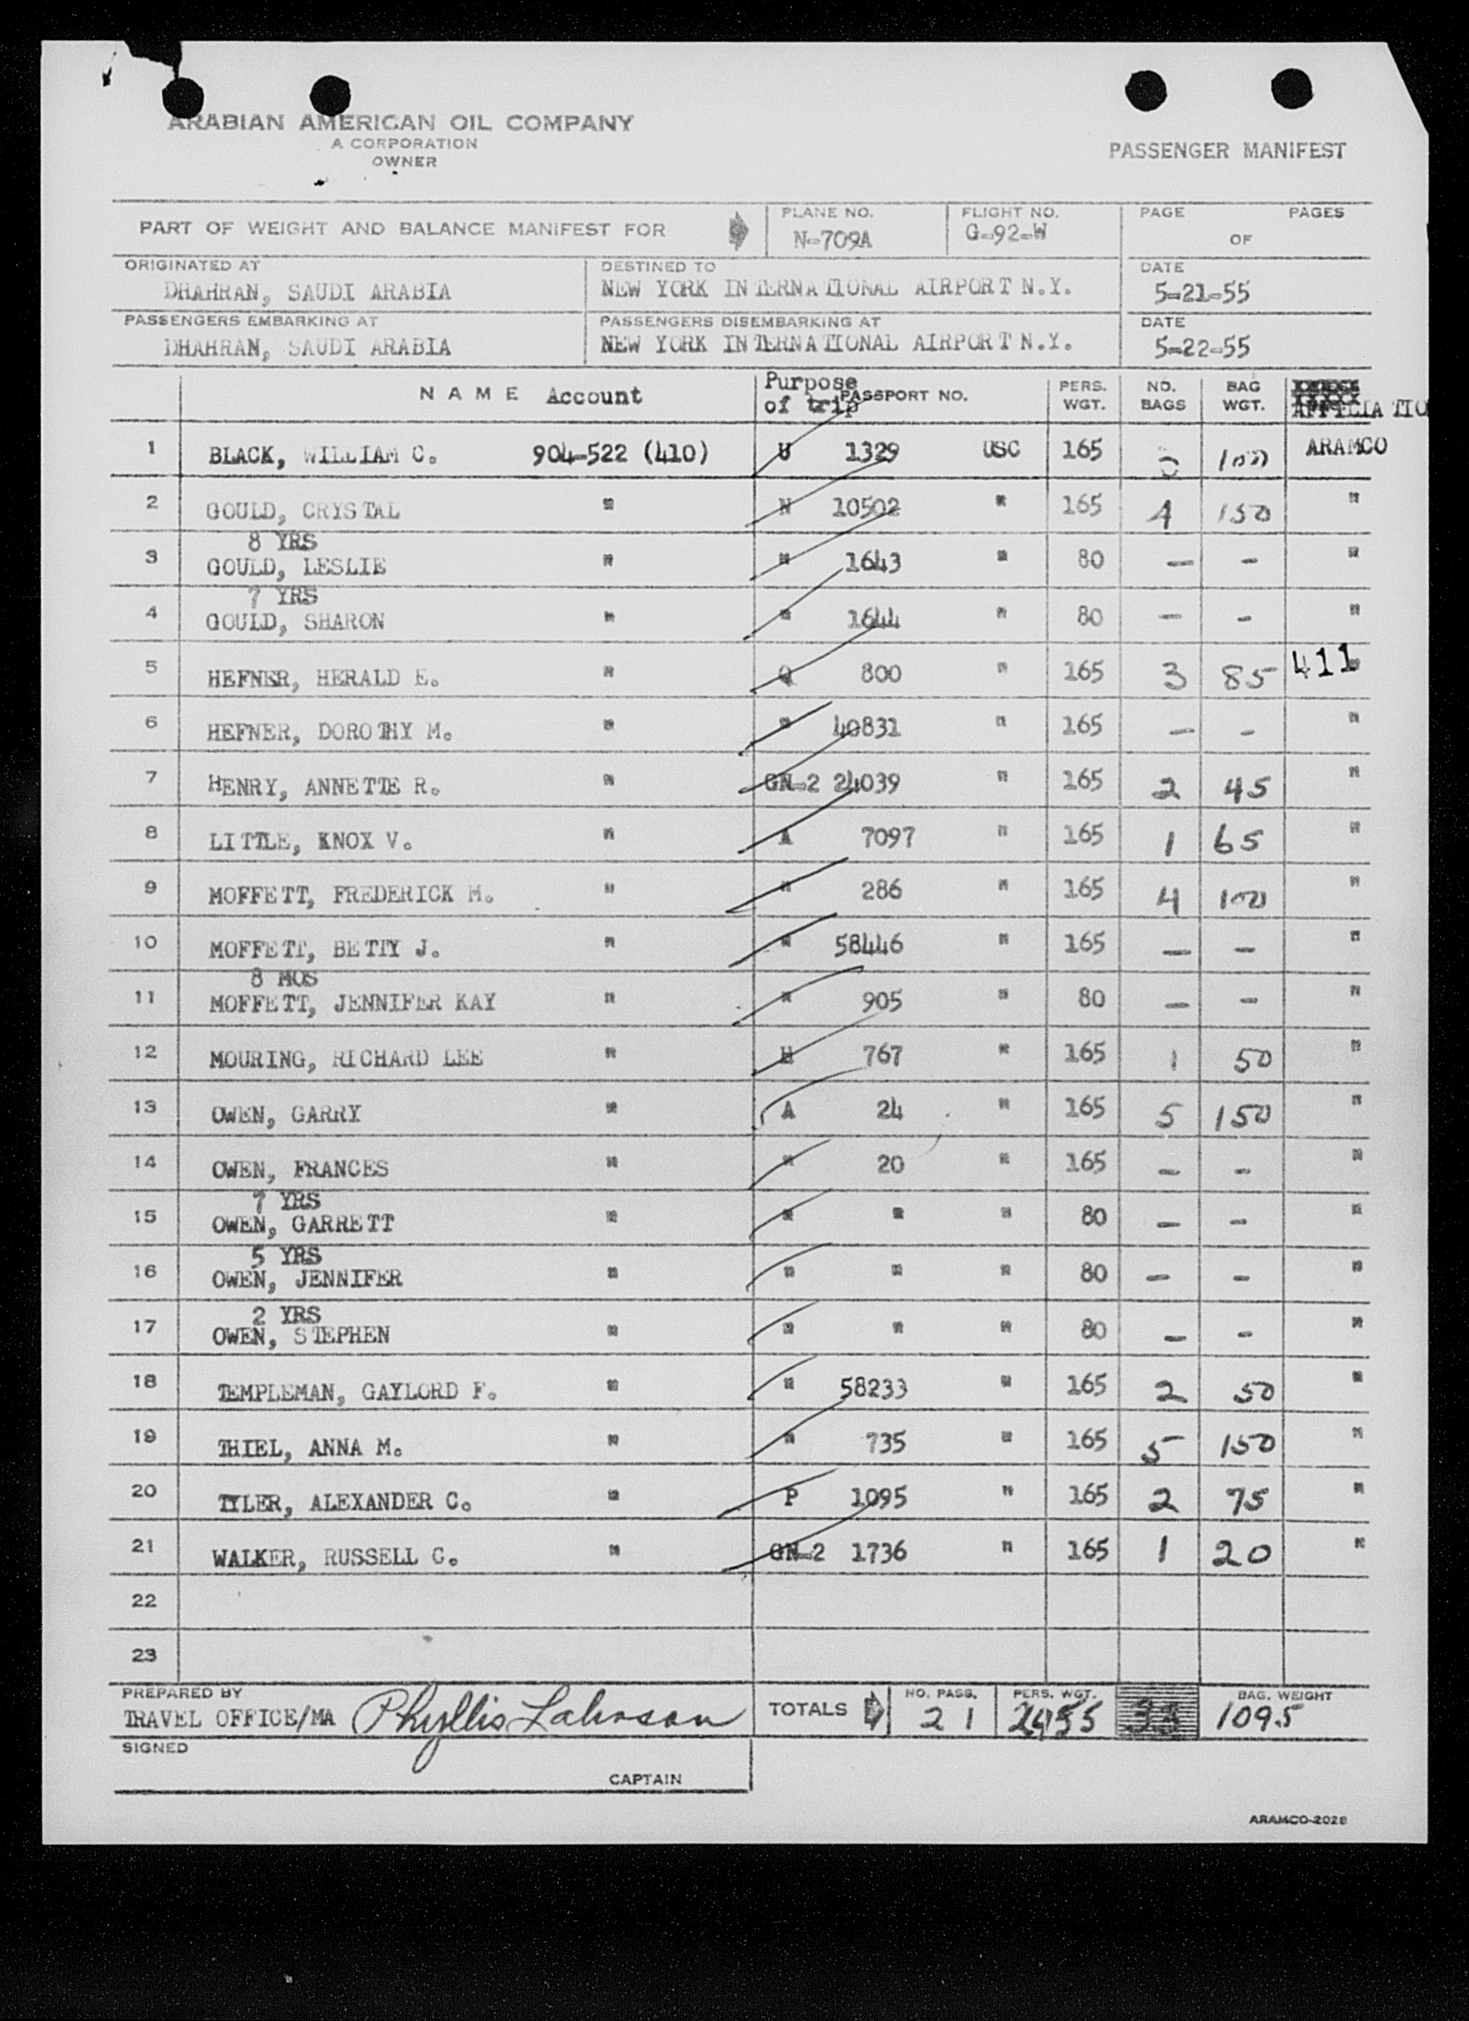 ARABIAN AMERICAN OIL COMPANY
A CORPORATION
OWNER
PASSENGER MANIFEST
PART OF WEIGHT AND BALANCE MANIFEST FOR PLANE NO. N-709A FLIGHT NO. G-92-W PAGE OF PAGES
ORIGINATED AT DESTINED TO DATE
DHAHRAN, SAUDI ARABIA NEW YORK INTERNATIONAL AIRPORT N.Y. 5-21-55
PASSENGERS EMBARKING AT PASSENGERS DISEMBARKING AT DATE
DHAHRAN, SAUDI ARABIA NEW YORK INTERNATIONAL AIRPORT N.Y. 5-22-55
NAME Account Purpose of trip PASSPORT NO. PERS. WGT. NO. BAGS BAG WGT. AFFILIATIO
1 BLACK, WILLIAM C. 904-522 (410) U 1329 USC 165 100 ARAMCO
2 GOULD, CRYSTAL " N 10502 " 165 4 150 "
8 YRS
3 GOULD, LESLIE " " 1643 " 80 — - "
7 YRS
4 GOULD, SHARON " " 1644 " 80 — - "
5 HEFNER, HERALD E. " Q 800 " 165 3 85 411 "
6 HEFNER, DOROTHY M. " " 40831 " 165 — - "
7 HENRY, ANNETTE R. " GN-2 24039 " 165 2 45 "
8 LITTLE, KNOX V. " A 7097 " 165 1 65 "
9 MOFFETT, FREDERICK M. " " 286 " 165 4 100 "
10 MOFFETT, BETTY J. " " 58446 " 165 — — "
8 MOS
11 MOFFETT, JENNIFER KAY " " 905 " 80 — - "
12 MOURING, RICHARD LEE " H 767 " 165 1 50 "
13 OWEN, GARRY " A 24 " 165 5 150 "
14 OWEN, FRANCES " " 20 " 165 — - "
7 YRS
15 OWEN, GARRETT " " " " 80 — - "
5 YRS
16 OWEN, JENNIFER " " " " 80 — - "
2 YRS
17 OWEN, STEPHEN " " " " 80 — - "
18 TEMPLEMAN, GAYLORD F. " " 58233 " 165 2 50 "
19 THIEL, ANNA M. " " 735 " 165 5 150 "
20 TYLER, ALEXANDER C. " P 1095 " 165 2 75 "
21 WALKER, RUSSELL C. " GN-2 1736 " 165 1 20 "
22
23
PREPARED BY
TRAVEL OFFICE/MA Phyllis TOTALS NO. PASS. 21 PERS. WGT. 2955 33 BAG. WEIGHT 1095
SIGNED
CAPTAIN
ARAMCO-2028